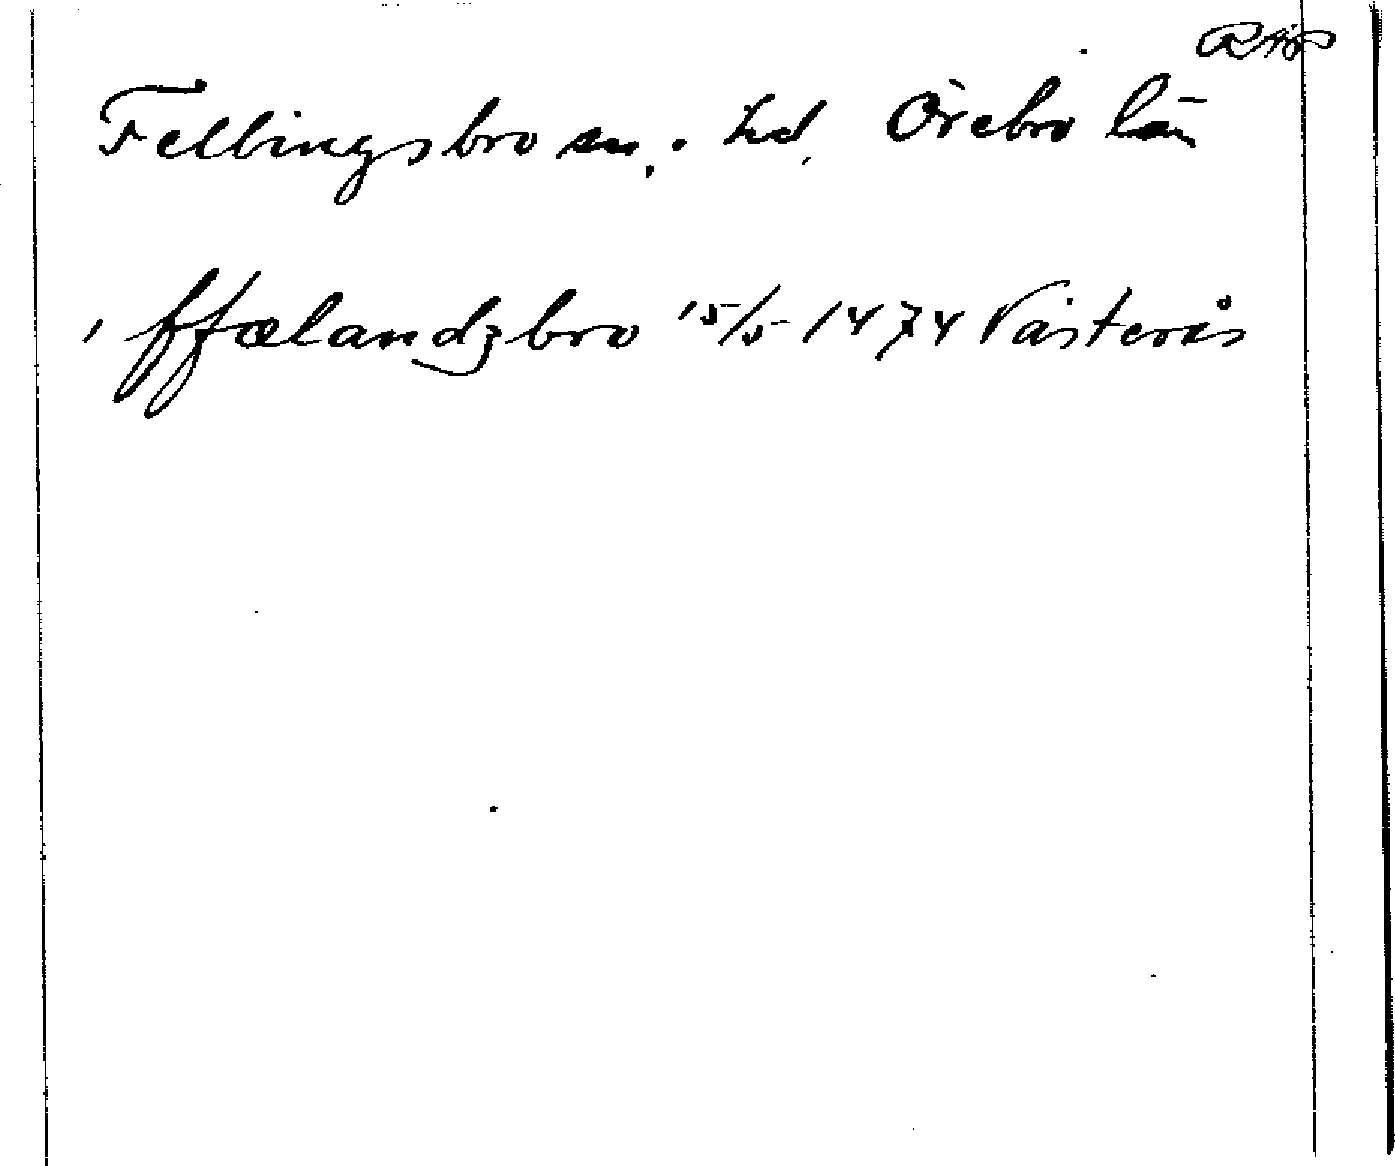 Fellingsbro sn. hd. Örebro län
, ffælandzbro 15/5 1474 Västerås